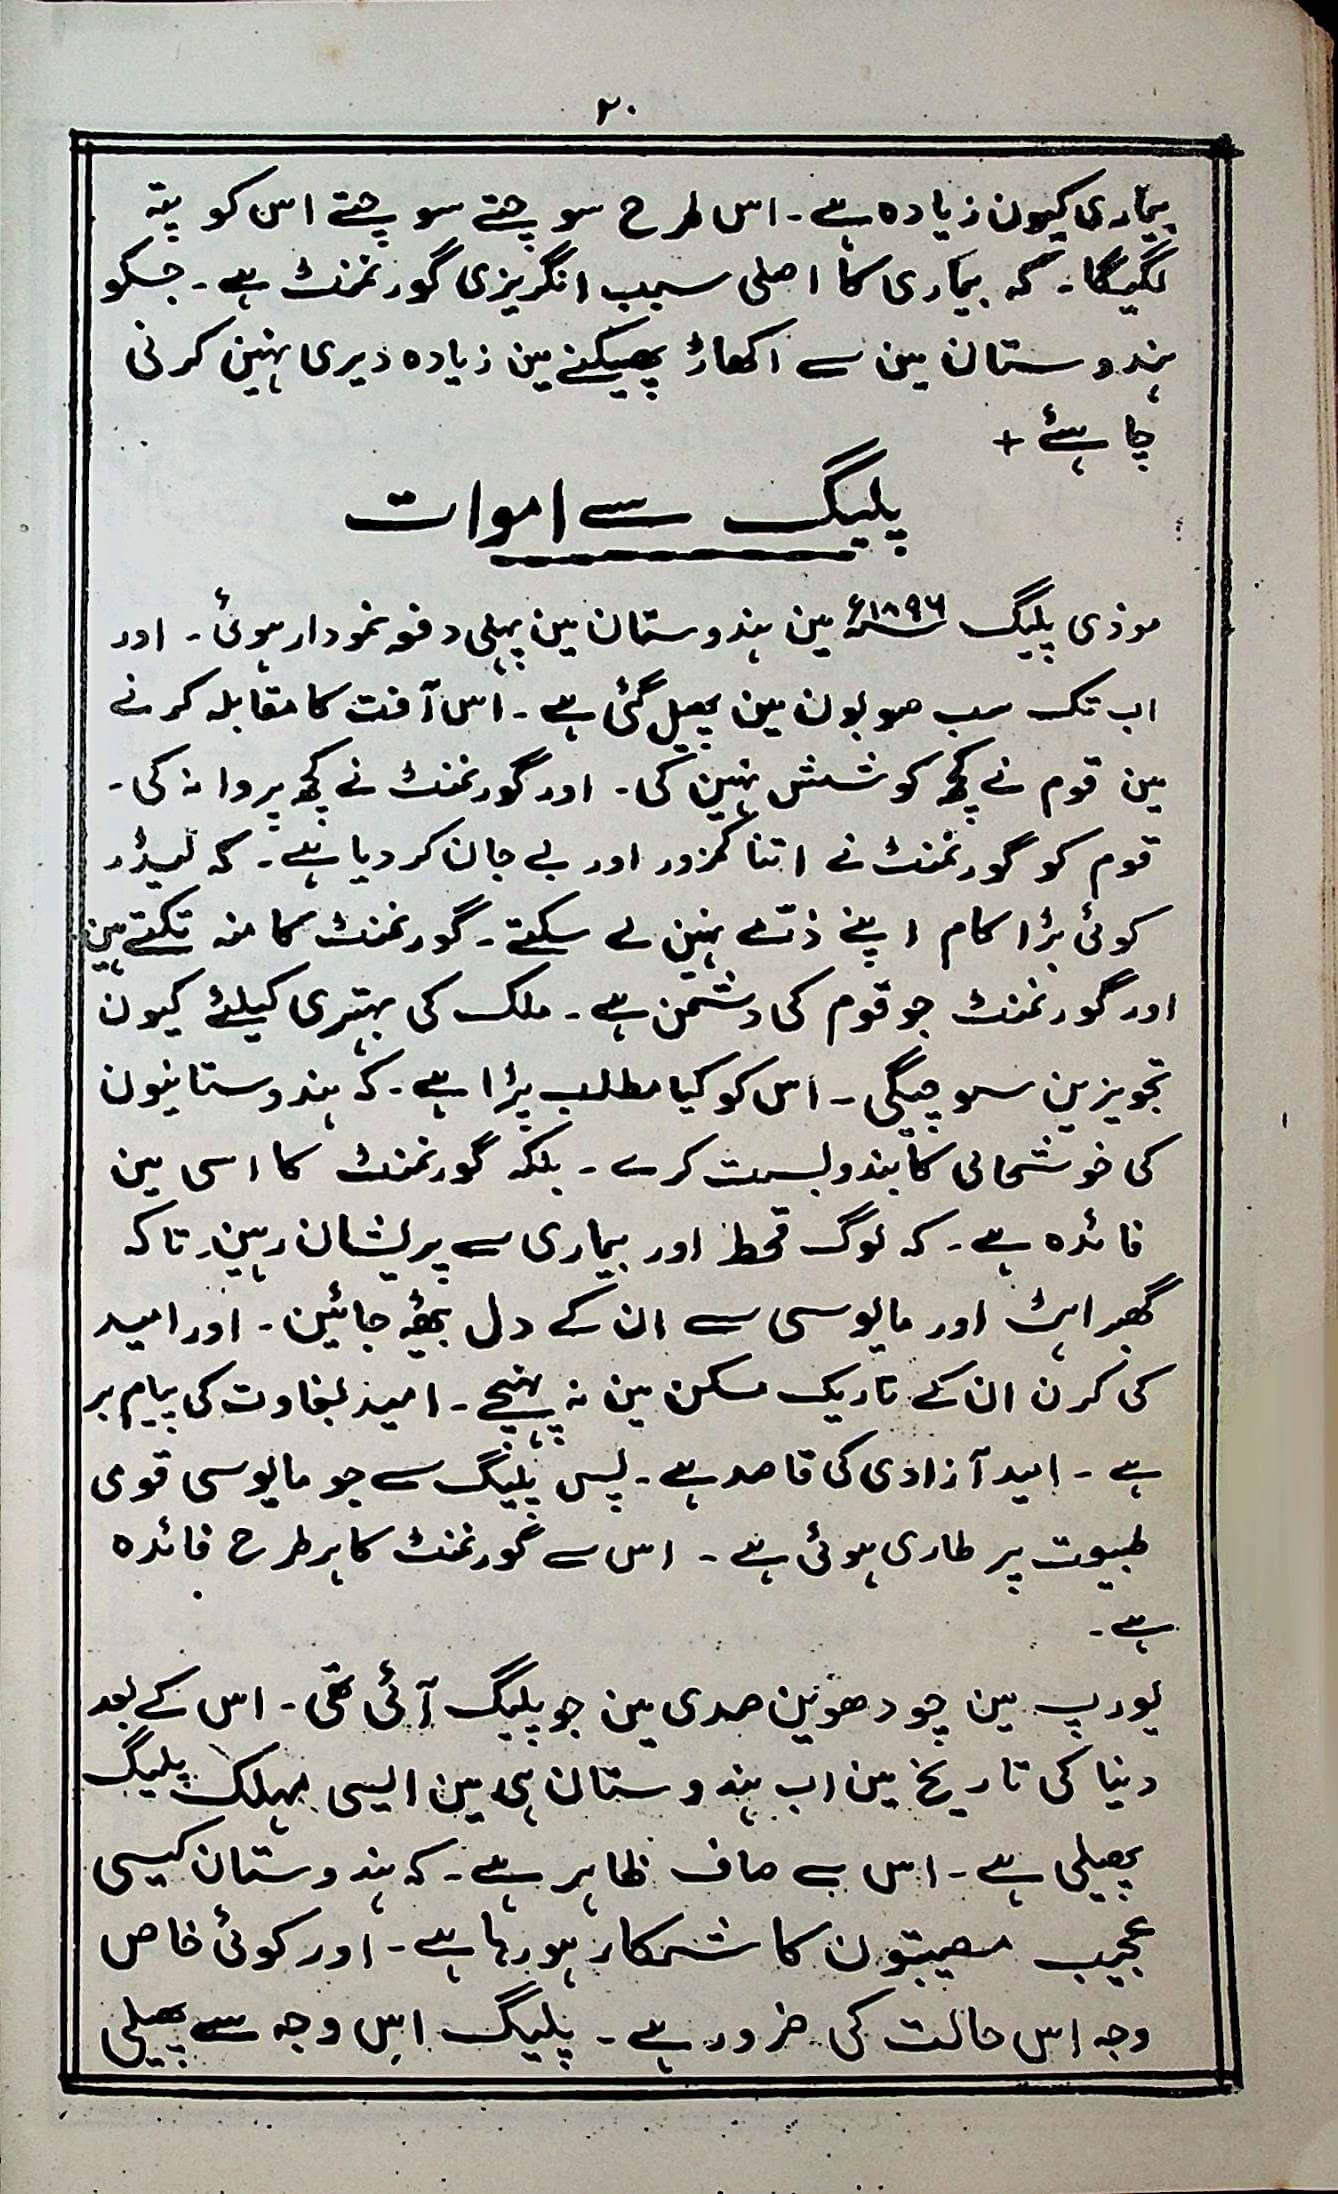 ۲۰
بیماری کیون زیادہ ہے۔ اس طرح سوچتے سوچتے اس کو پتہ
لگیگا۔ کہ بیماری کا اصلی سبب انگریزی گورنمنٹ ہے۔ جسکو
ہندوستان مین سے اکھاڑ پھینکنے مین زیادہ دیری نہین کرنی
چاہئے +
پلیگ سے اموات
موذی پلیگ ۱۸۹۶ء مین ہندوستان مین پہلی دفعہ نمودار ہوئی۔ اور
اب تک سب صوبون مین پھیل گئی ہے۔ اس آفت کا مقابلہ کرنے
مین قوم نے کچھ کوشش نہین کی۔ اور گورنمنٹ نے کچھ پروا نہ کی۔
قوم کو گورنمنٹ نے اتنا کمزور اور بے جان کر دیا ہے۔ کہ لیڈر
کوئی بڑا کام اپنے ذمّے نہین لے سکتے۔ گورنمنٹ کا منہ تکتے ہین
اور گورنمنٹ جو قوم کی دشمن ہے۔ ملک کی بہتری کیلئے کیون
تجویزین سوچیگی۔ اس کو کیا مطلب پڑا ہے۔ کہ ہندوستانیون
کی خوشحالی کا بندوبست کرے۔ بلکہ گورنمنٹ کا اسی مین
فائدہ ہے۔ کہ لوگ قحط اور بیماری سے پریشان رہین۔ تاکہ
گھبراہٹ اور مایوسی سے ان کے دل بجھ جائین۔ اور امید
کی کرن ان کے تاریک مسکن مین نہ پہنچے۔ امید بغاوت کی پیام بر
ہے۔ امید آزادی کی قاصد ہے۔ پس پلیگ سے جو مایوسی قومی
طبیعت پر طاری ہوئی ہے۔ اس سے گورنمنٹ کا ہر طرح فائدہ
ہے۔
یورپ مین چودھوین صدی مین جو پلیگ آئی تھی۔ اس کے بعد
دنیا کی تاریخ مین اب ہندوستان ہی مین ایسی مہلک پلیگ
پھیلی ہے۔ اس سے صاف ظاہر ہے۔ کہ ہندوستان کیسی
عجیب مصیبتون کا شکار ہو رہا ہے۔ اور کوئی خاص
وجہ اس حالت کی ضرور ہے۔ پلیگ اس وجہ سے پھیلی